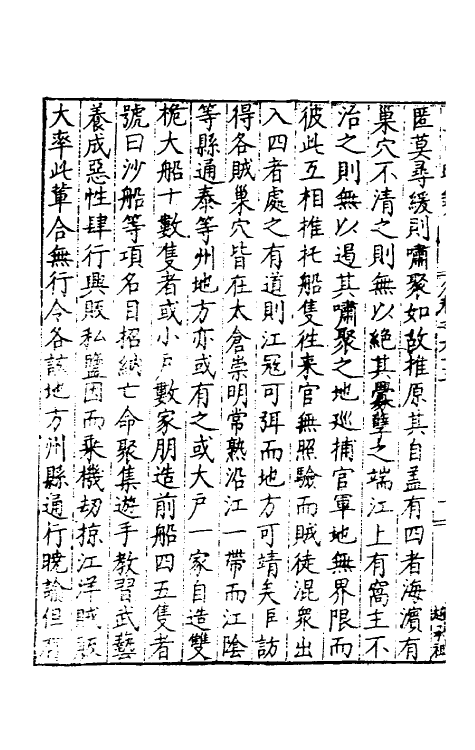 匿莫尋緩則嘯聚如故推原其自盖有四者海濱有
巢穴不清之則無以絕其釁孽之端江上有窩主不
治之則無以遏其嘯聚之地巡捕官軍地無界限而
彼此互相推托船隻徃來官無照驗而賊徒混衆出
入四者處之有道則江冦可弭而地方可靖矣臣訪
得各賊巢穴皆在太倉崇明常熟沿江一帶而江陰
等縣通泰等州地方亦或有之或大戶一家自造雙
桅大船十數隻者或小戶數家朋造前船四五隻者
號曰沙船等項名目招納亡命聚集遊手教習武藝
養成惡性肆行興販私鹽因而乘機刼掠江洋賊販
大率此軰合無行令各該地方州縣通行曉諭但